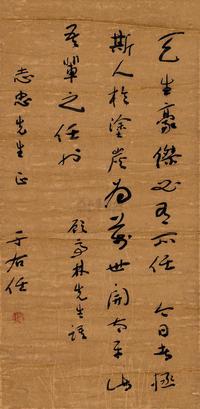 天生豪傑必有所任今日者拯
斯人於塗炭為萬世開太平此
吾輩之任也
顧亭林先生語
志忠先生正
于右任